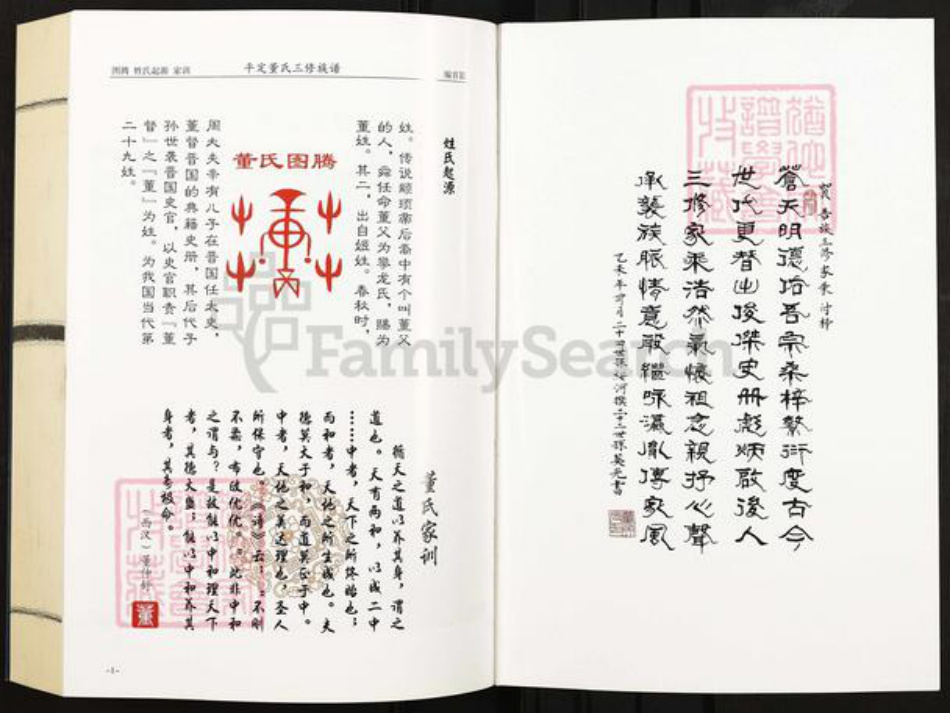 图腾 姓氏起源 家训
平定董氏三修族谱
编首
姓氏起源
姓。传说颛顼帝后裔中有个叫董父
的人，舜任命董父为豢龙氏，赐为
董姓。其二，出自姬姓。春秋时，
董氏图腾
周大夫辛有儿子在晋国任太史，
董督晋国的典籍史册，其后代子
孙世袭晋国史官，以史官职责『董
督』之『董』为姓。为我国当代第
二十九姓。
董氏家训
循天之道以养其身，谓之
道也。天有两和，以成二中
……中者，天下之所终始也；
而和者，天地之所生成也。夫
德莫大于和，而道莫正于中。
中者，天地之美达理也，圣人
所保守也。《诗》云：『不刚
不柔，布政优优。』此非中和
之谓与？是故能以中和理天下
者，其德大盛；能以中和养其
身者，其寿极命。
（西汉）董仲舒
董
-1-
贺吾族三修家乘付梓
苍天明德佑吾宗桑梓繁衍度古今
世代更替出俊杰史册彪炳启后人
三修家乘浩然气怀祖念亲抒心声
承袭族脉情意殷继咏瀛胤传家风
FamilySearch